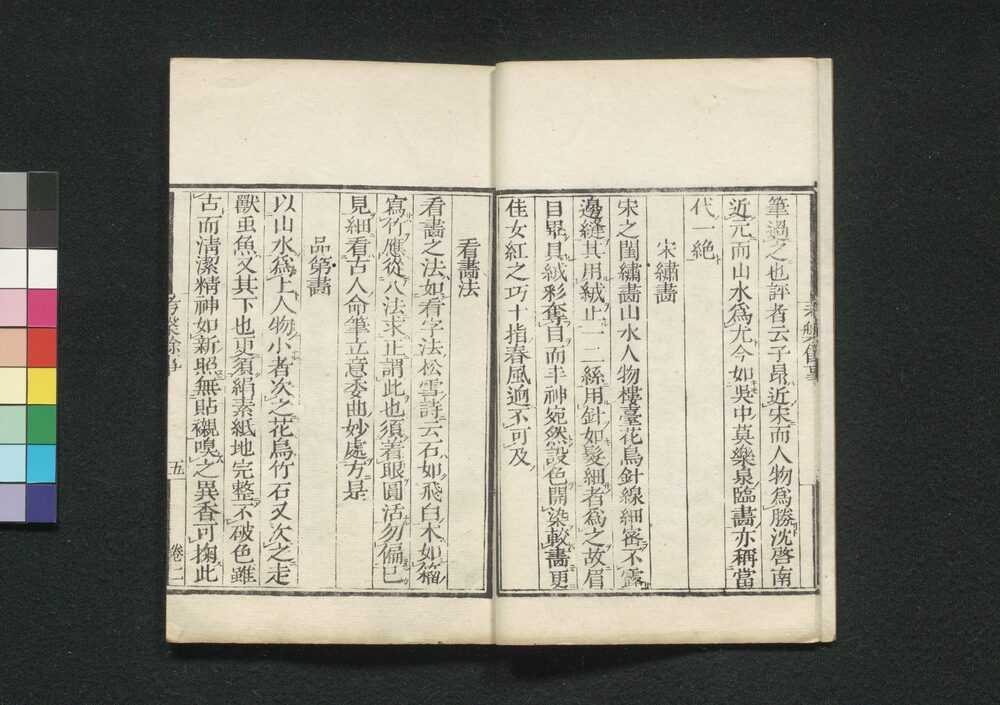 筆過之也評者云子昂近宋而人物爲勝沈啓南
近元而山水爲尤今如吳中莫樂泉臨畵亦稱當
代一絶
宋繡畵
宋之閨繡畵山水人物樓臺花鳥針線細密不露
邊縫其用絨止一二絲用針如髮細者爲之故眉
目畢具絨彩奪目而丰神宛然設色開染較畵更
佳女紅之巧十指春風逈不可及
看畵法
看畵之法如看字法松雪詩云石如飛白木如籀
寫竹應從八法求正謂此也須着眼圓活勿偏己
見細看古人命筆立意委曲妙處方是
品第畵
以山水爲上人物小者次之花鳥竹石又次之走
獸虫魚又其下也更須絹素紙地完整不破色雖
古而淸潔精神如新照無貼襯嗅之異香可掬此
考槃餘事
五
卷二